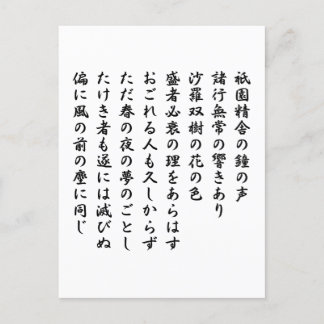 祇園精舎の鐘の声
諸行無常の響きあり
沙羅双樹の花の色
盛者必衰の理をあらはす
おごれる人も久しからず
ただ春の夜の夢のごとし
たけき者も遂には滅びぬ
偏に風の前の塵に同じ